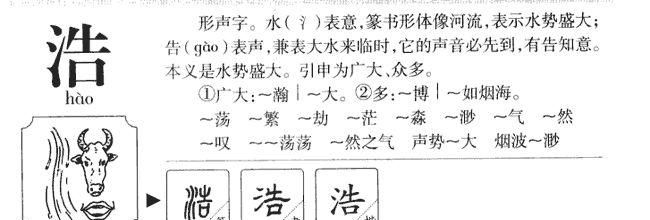 浩
hào
形声字。水(氵)表意,篆书形体像河流,表示水势盛大;
告(gào)表声,兼表大水来临时,它的声音必先到,有告知意。
本义是水势盛大。引申为广大、众多。
①广大:~瀚|~大。②多:~博|~如烟海。
~荡 ~繁 ~劫 ~茫 ~淼 ~渺 ~气 ~然
~叹 ~~荡荡 ~然之气 声势~大 烟波~渺
浩 浩 浩